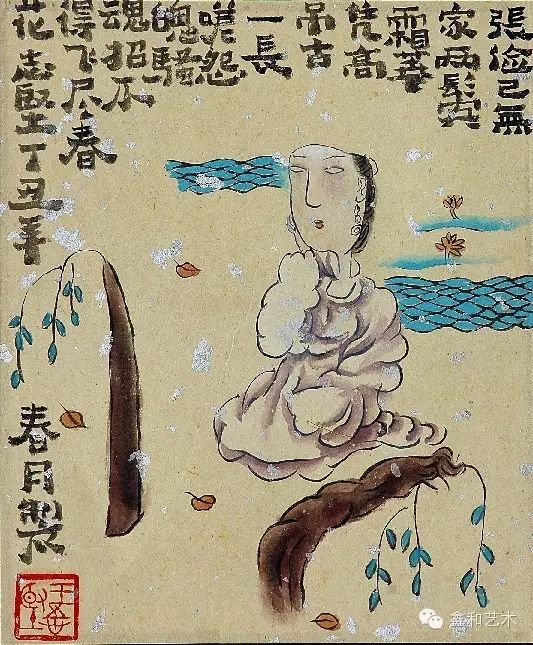 張儉已無
家兩鬢
霜華
凴高
吊古
一長
嗟怨
魄騷
魂招不
得飞尽春
花志堅丁丑年
春月製
鑫和艺术